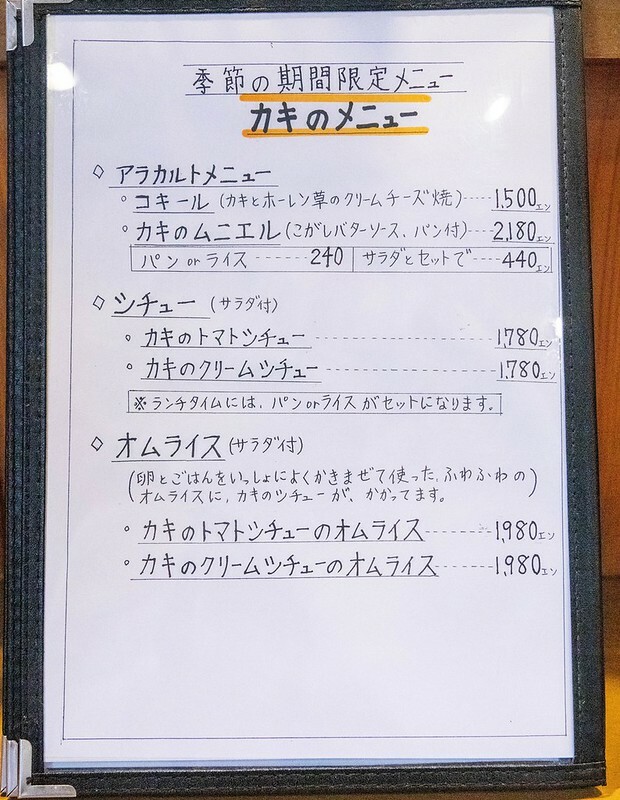 季節の期間限定メニュー
カキのメニュー
◇ アラカルトメニュー
◦ コキール (カキとホーレン草のクリームチーズ焼)-----1,500エン
◦ カキのムニエル(こがしバターソース、パン付)----2,180エン
パン or ライス ------- 240 | サラダとセットで---- 440エン
◇ シチュー (サラダ付)
◦ カキのトマトシチュー --------------------- 1,780エン
◦ カキのクリームシチュー -------------------- 1,780エン
※ ランチタイムには、パン or ライスがセットになります。
◇ オムライス (サラダ付)
(卵とごはんをいっしょによくかきまぜて使った、ふわふわの
オムライスに、カキのシチューが、かかってます。)
◦ カキのトマトシチューのオムライス--------1,980エン
◦ カキのクリームシチューのオムライス-------1,980エン